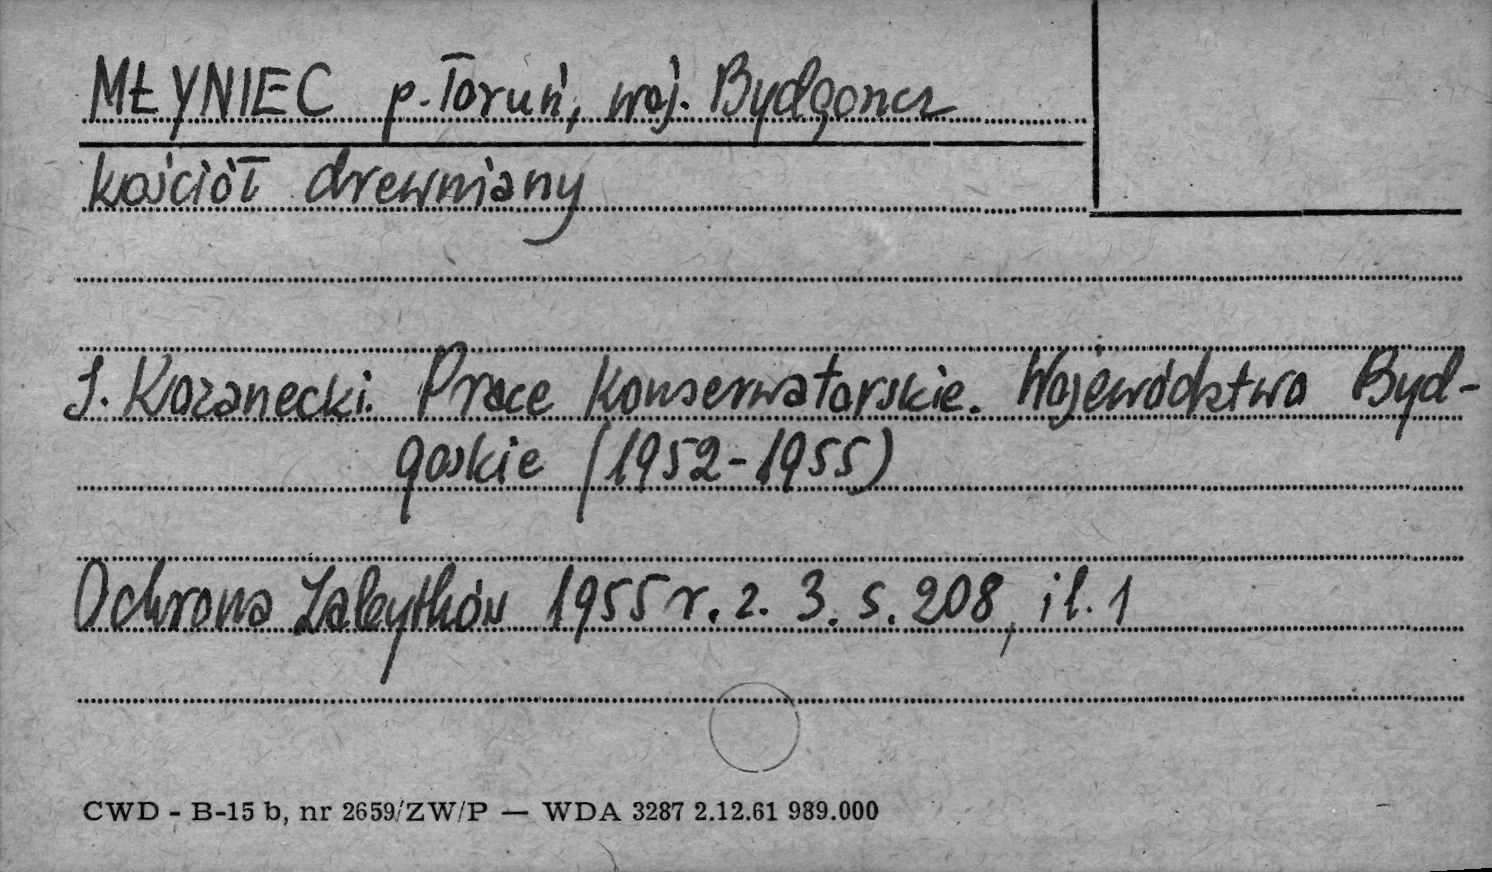 MŁYNIEC p. Toruń, woj. Bydgoszcz
kościół drewniany
J. Kozanecki. Prace Konserwatorskie. Województwo Byd-
goskie (1952-1955)
Ochrona Zabytków 1955 r. z. 3. s. 208, il. 1
CWD - B-15 b, nr 2659/ZW/P — WDA 3287 2.12.61 989.000